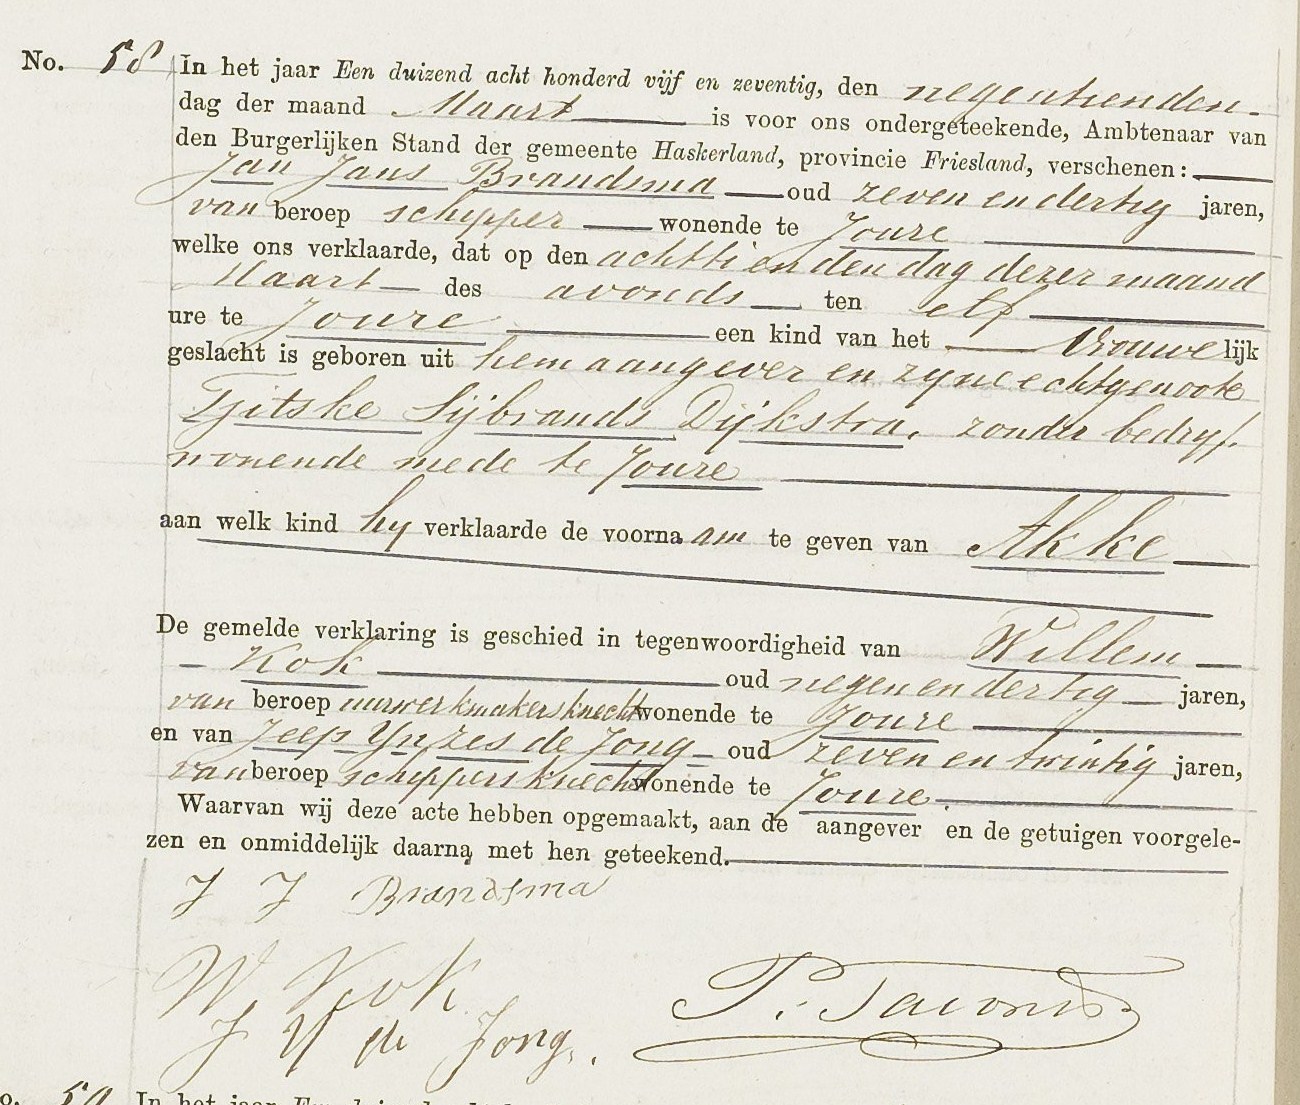 No. 58 In het jaar Een duizend acht honderd vijf en zeventig, den negentienden
dag der maand Maart is voor ons ondergeteekende, Ambtenaar van
den Burgerlijken Stand der gemeente Haskerland, provincie Friesland, verschenen:
Jan Jans Brandsma oud zeven en dertig jaren,
van beroep schipper wonende te Joure
welke ons verklaarde, dat op den achttienden dag dezer maand
Maart des avonds ten elf
ure te Joure een kind van het Vrouwelijk
geslacht is geboren uit hem aangever en zijne echtgenoote
Tjitske Sijbrands Dijkstra, zonder bedrijf
wonende mede te Joure
aan welk kind hy verklaarde de voornaam te geven van Akke
De gemelde verklaring is geschied in tegenwoordigheid van Willem
Kok oud negen en dertig jaren,
van beroep uurwerkmakersknecht wonende te Joure
en van Jeep Ynzes de Jong oud zeven en twintig jaren,
van beroep schippersknecht wonende te Joure.
Waarvan wij deze acte hebben opgemaakt, aan de aangever en de getuigen voorgele-
zen en onmiddelijk daarna met hen geteekend.
J J Brandsma
W. Kok
J Y de Jong.
No. 59 In het jaar